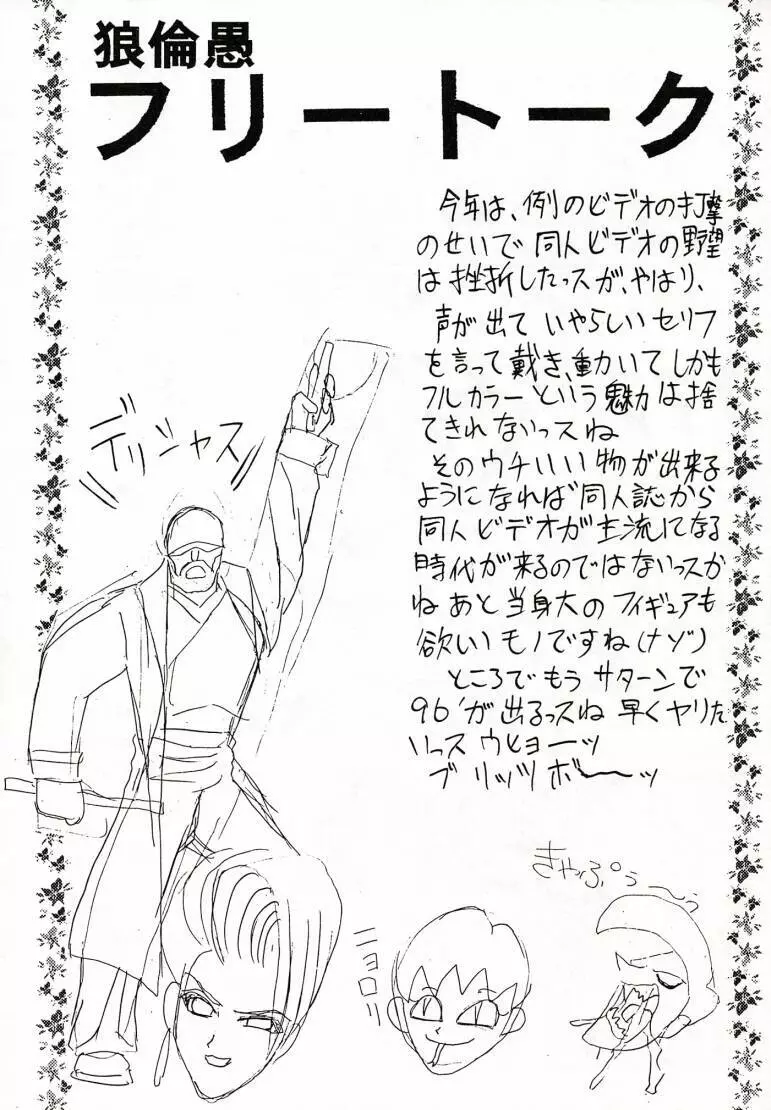 狼倫愚
フリートーク
今年は、例のビデオの打撃
のせいで同人ビデオの野望
は挫折したっスが、やはり、
声が出ていやらしいセリフ
を言って戴き、動いてしかも
フルカラーという魅力は捨
てきれないっスね
そのウチいい物が出来る
ようになれば同人誌から
同人ビデオが主流になる
時代が来るのではないっスか
ねあと当身大のフィギュアも
欲しいモノですね(ナゾ)
ところでもうサターンで
96'が出るっスね早くヤリた
いっスウヒョーッ
ブリッツボーーッ
デリシャス
ニョロリ
きゃぷぅ〜ぅ